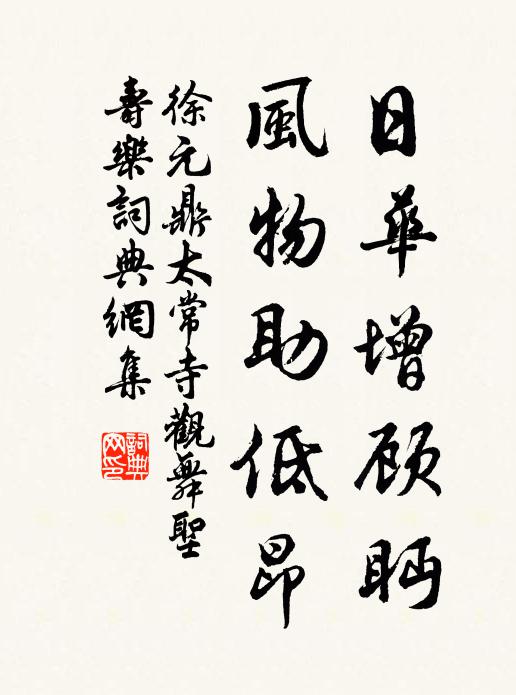 日華增顾眄
風物助低昂
徐元鼎太常寺觀舞聖
壽樂詞典網集
詞典网印